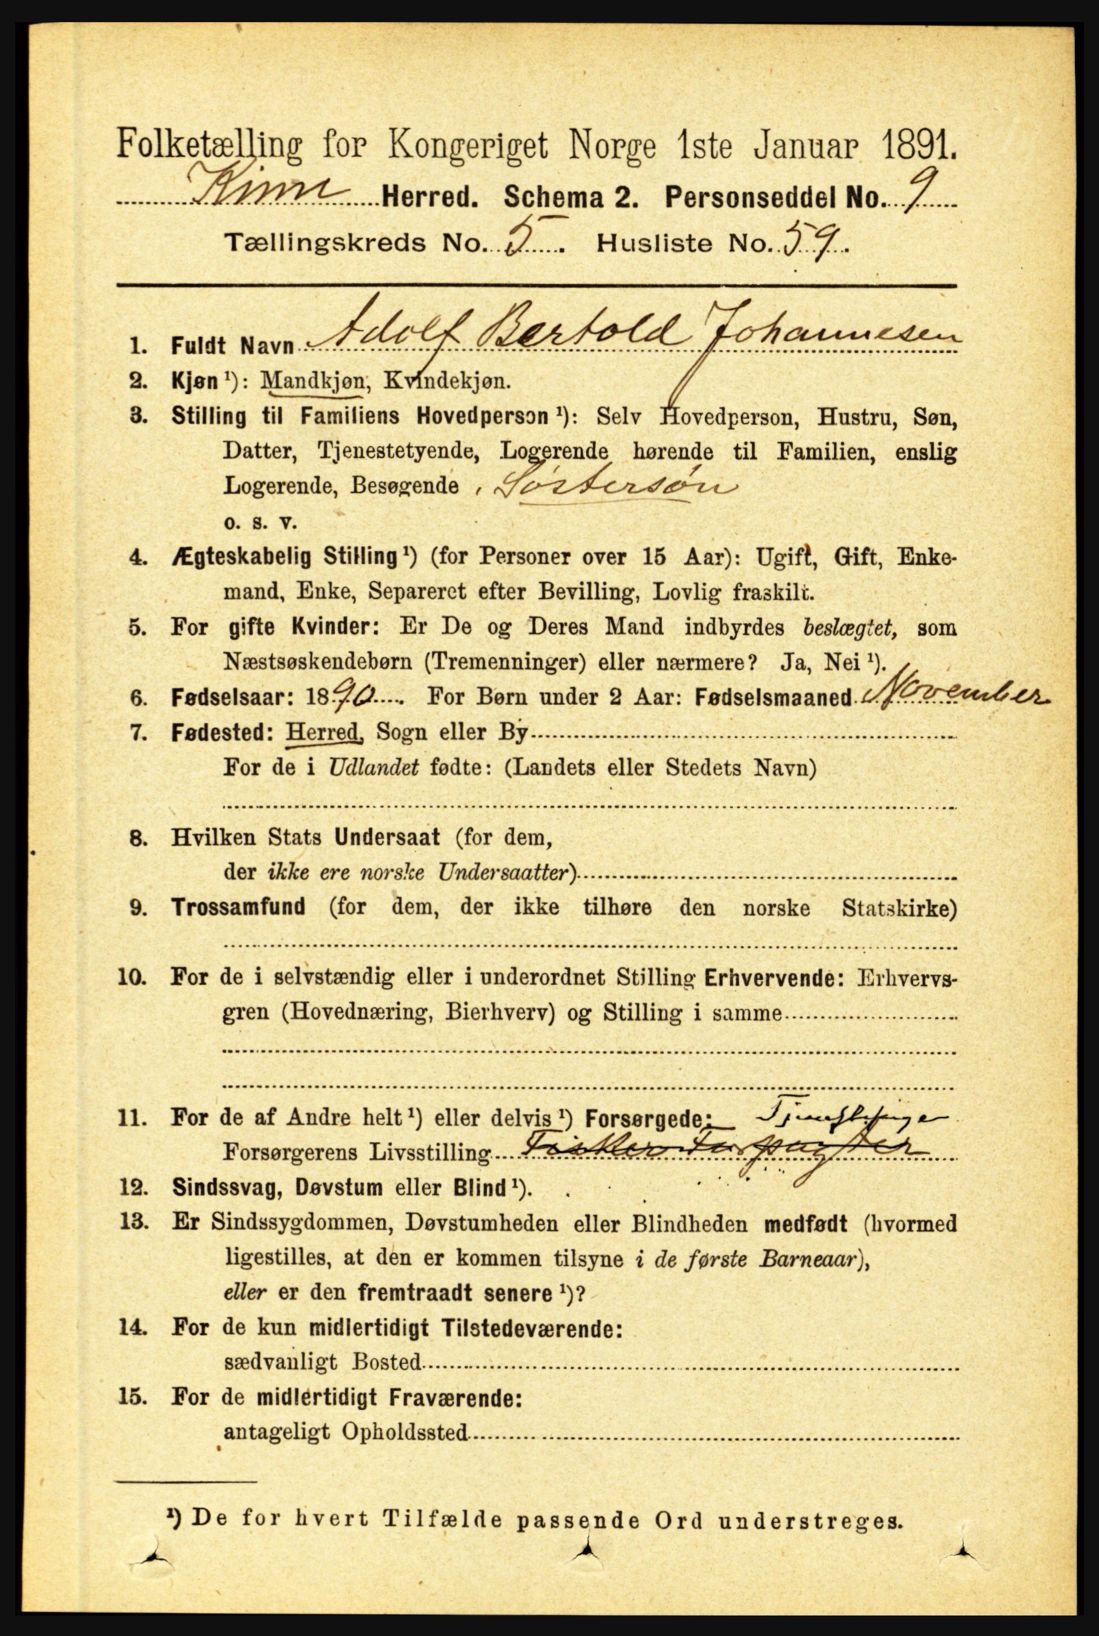 Folketælling for Kongeriget Norge 1ste Januar 1891.
Kinn Herred. Schema 2. Personseddel No. 9
Tællingskreds No. 5. Husliste No. 59.
1. Fuldt Navn Adolf Bertold Johannesen
2. Kjøn ¹): Mandkjøn, Kvindekjøn.
3. Stilling til Familiens Hovedperson ¹): Selv Hovedperson, Hustru, Søn,
Datter, Tjenestetyende, Logerende hørende til Familien, enslig
Logerende, Besøgende, Søstersøn
o. s. v.
4. Ægteskabelig Stilling ¹) (for Personer over 15 Aar): Ugift, Gift, Enke-
mand, Enke, Separeret efter Bevilling, Lovlig fraskilt.
5. For gifte Kvinder: Er De og Deres Mand indbyrdes beslægtet, som
Næstsøskendebørn (Tremenninger) eller nærmere? Ja, Nei ¹).
6. Fødselsaar: 1890. For Børn under 2 Aar: Fødselsmaaned November
7. Fødested: Herred, Sogn eller By
For de i Udlandet fødte: (Landets eller Stedets Navn)
8. Hvilken Stats Undersaat (for dem,
der ikke ere norske Undersaatter)
9. Trossamfund (for dem, der ikke tilhøre den norske Statskirke)
10. For de i selvstændig eller i underordnet Stilling Erhvervende: Erhvervs-
gren (Hovednæring, Bierhverv) og Stilling i samme
11. For de af Andre helt ¹) eller delvis ¹) Forsørgede:
Forsørgerens Livsstilling Fisker Forpagter
12. Sindssvag, Døvstum eller Blind ¹).
13. Er Sindssygdommen, Døvstumheden eller Blindheden medfødt (hvormed
ligestilles, at den er kommen tilsyne i de første Barneaar),
eller er den fremtraadt senere ¹)?
14. For de kun midlertidigt Tilstedeværende:
sædvanligt Bosted
15. For de midlertidigt Fraværende:
antageligt Opholdssted
¹) De for hvert Tilfælde passende Ord understreges.